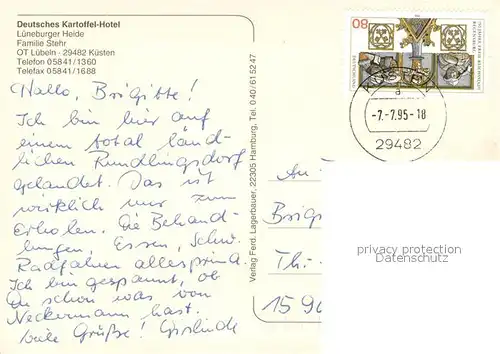 Deutsches Kartoffel-Hotel
Lüneburger Heide
Familie Stehr
OT Lübeln · 29482 Küsten
Telefon 05841/1360
Telefax 05841/1688
Hallo, Brigitte!
Ich bin hier auf
einem total länd-
lichen Rundlingsdorf
gelandet. Das ist
wirklich nur zum
Erholen. Die Behand-
lungen, Essen, Schw.
Radfahren alles prima.
Ich bin gespannt, ob
Du schon was von
Neckermann hast.
Viele Grüße! Giselinde
Verlag Ferd. Lagerbauer, 22305 Hamburg, Tel. 040/61 52 47
80
DEUTSCHLAND
-7.-7.95-18
29482
An
Brig
Th.-
159
privacy protection
Datenschutz